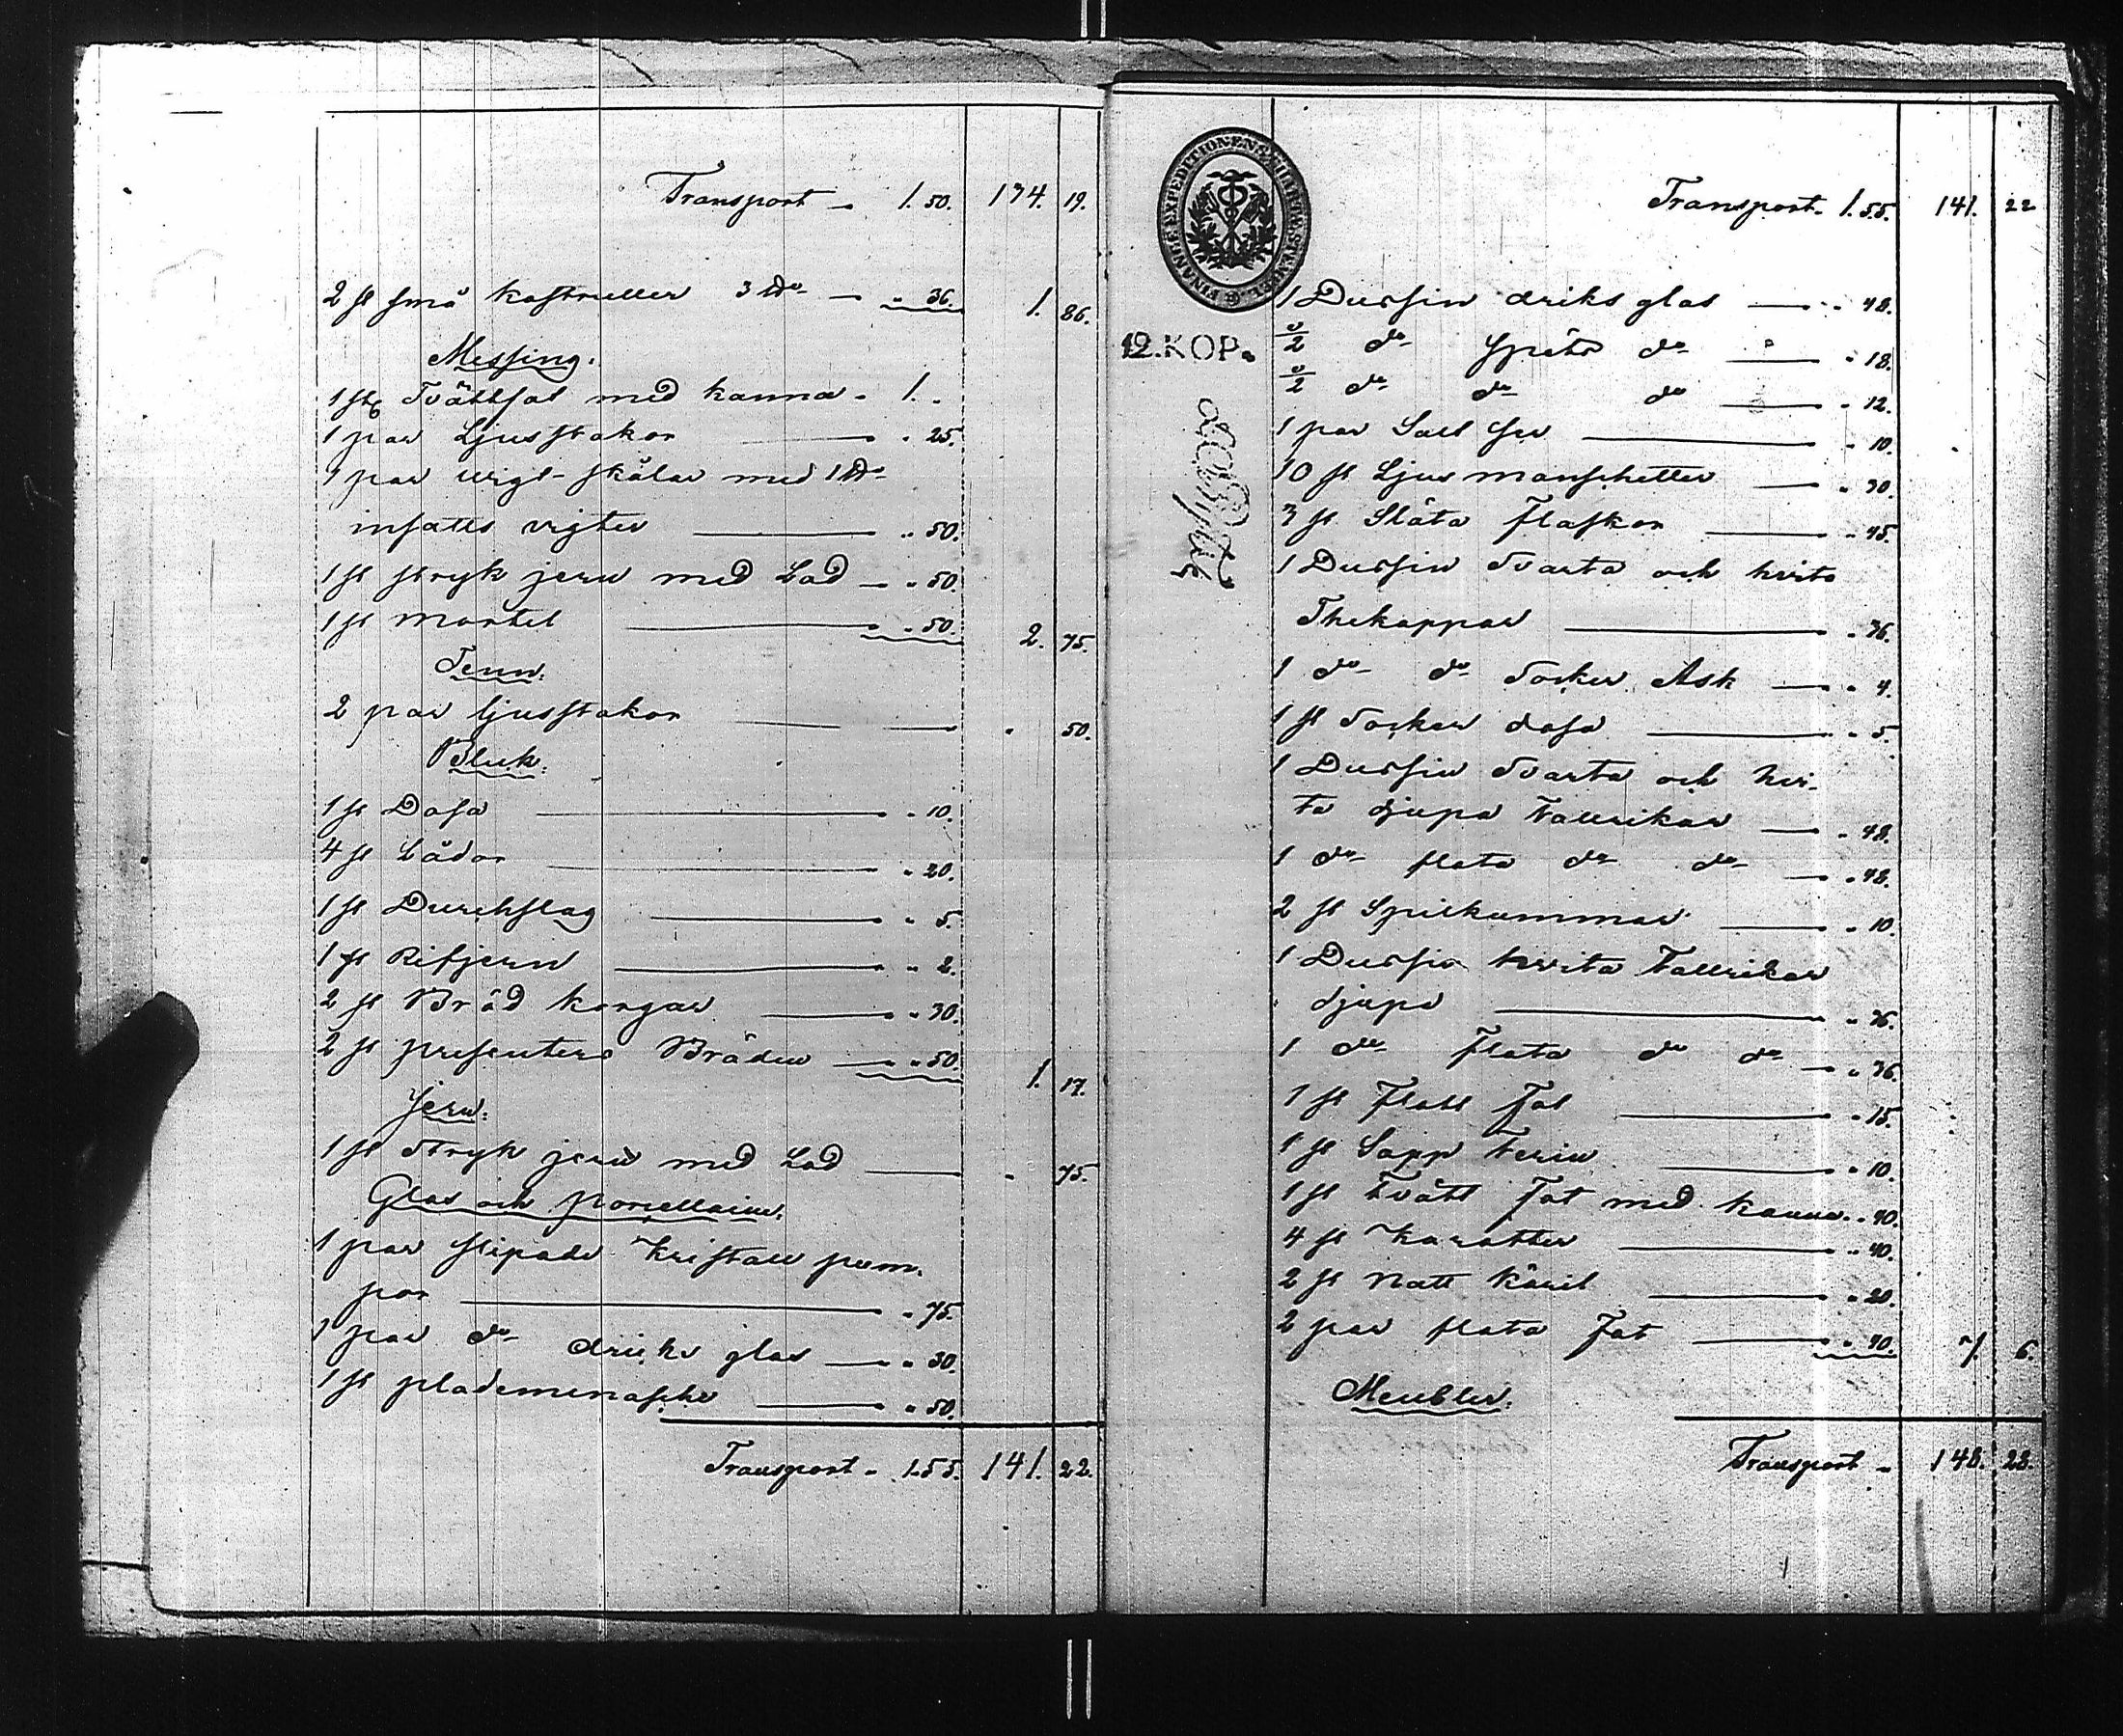 Transport - 1. 50. 134. 19.
2 st små kastruller 3 ℔ - " 36. 1. 86.
Messing.
1 st Tvättfat med kanna - 1. -
1 par Ljusstakor " 25.
1 par vigt-skålar med 1 ℔
insatts vigter " 50.
1 st stryk jern med Lod - " 50.
1 st mortel " 50. 2. 75.
Tenn.
2 par ljusstakor " 50.
Bleck.
1 st Dosa " 10.
4 st Lådor " 20.
1 st Durchslag " 5.
1 st Rifjern " 2.
2 st Bröd korgar " 30.
2 st presenter Bräden " 50. 1. 17.
Jern.
1 st Stryk jern med Lod " 75.
Glas och porcellaine.
1 par slipade kristall pum-
por " 75.
1 par do dricks glas " 30.
1 st plademenasche " 50.
Transport - 1.55. 141. 22.
FINANCE EXPEDITIONENS CHARTÆ STEMPEL
12. KOP.
Transport - 1.55. 141. 22
1 Dussin driks glas " 48.
1/2 do Spets do " 18.
1/2 do do do " 12.
1 par Salt kar " 10.
10 st Ljus manschetter " 30.
3 st Släta flaskor " 45.
1 Dussin Svarta och hvita
Thekoppar " 36.
1 do do Socker Ask " 4.
1 st Socker dosa " 5.
1 Dussin Svarta och hvi-
ta djupa Tallrikar " 48.
1 do flata do do " 48.
2 st Spilkummar " 10.
1 Dussin hvita Tallrikar
djupa " 36.
1 do flata do do " 36.
1 st flatt Fat " 15.
1 st Sopp Terin " 10.
1 st Tvätt Fat med kanna " 40.
4 st Karotter " 40.
2 st Natt käril " 20.
2 par flata Fat " 40. 7. 6.
Meubler.
Transport - 148. 28.